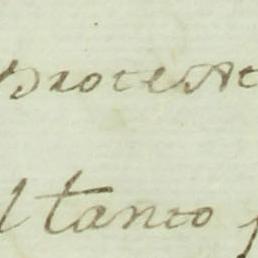 Protest
el tanto p